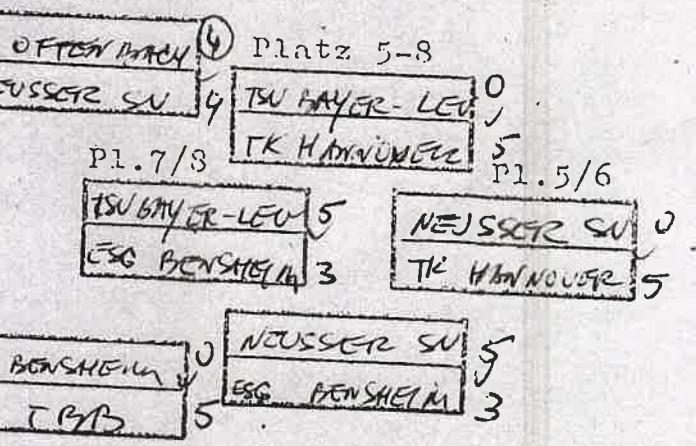 OFFENBACH 4 Platz 5-8
NEUSSER SV 4
TSV BAYER-LEV 0
TK HANNOVER 5
Pl.7/8
TSV BAYER-LEV 5
ESG BENSHEIM 3
Pl.5/6
NEUSSER SV 0
TK HANNOVER 5
BENSHEIM 0
TBB 5
NEUSSER SV 5
ESG BENSHEIM 3